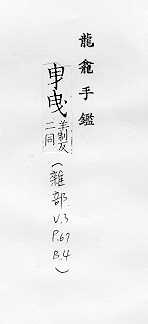 龍龕手鑑
曳羊制反二同(雜部 V.3 P.67 B.4)